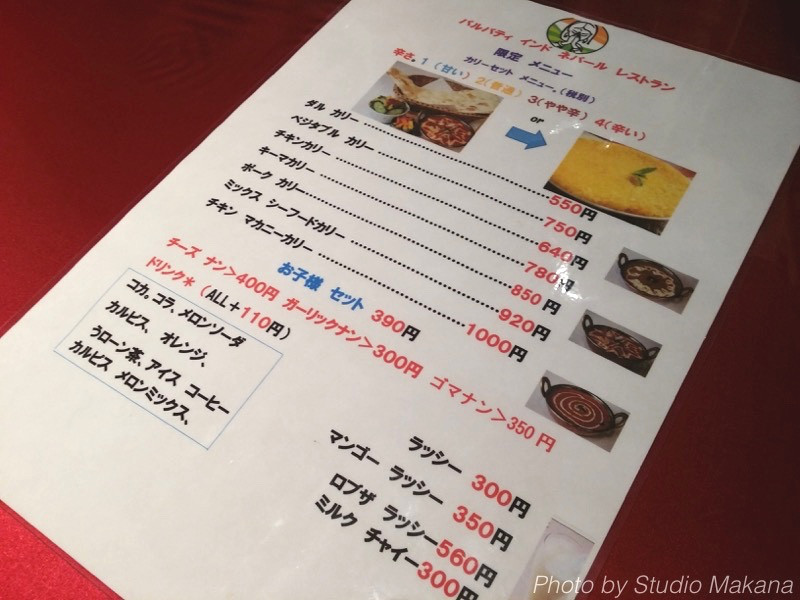 パルパティ インド ネパール レストラン
限定 メニュー
カリーセット メニュー。(税別)
辛さ。1（甘い）2（普通）3（やや辛）4（辛い）
or
ダル カリー ........ 550円
ベジタブル カリー ........ 750円
チキンカリー ........ 640円
キーマカリー ........ 780円
ポーク カリー ........ 850円
ミックス シーフードカリー ........ 920円
チキン マカニーカリー ........ 1000円
お子様 セット 390円
チーズ ナン＞400円 ガーリックナン＞300円 ゴマナン＞350円
ドリンク＊（ALL＋110円）
コカ。コラ、メロンソーダ
カルピス、オレンジ、
うローン茶、アイス コーヒー
カルピス メロンミックス、
ラッシー 300円
マンゴー ラッシー 350円
ロブザ ラッシー560円
ミルク チャイー300円
Photo by Studio Makana